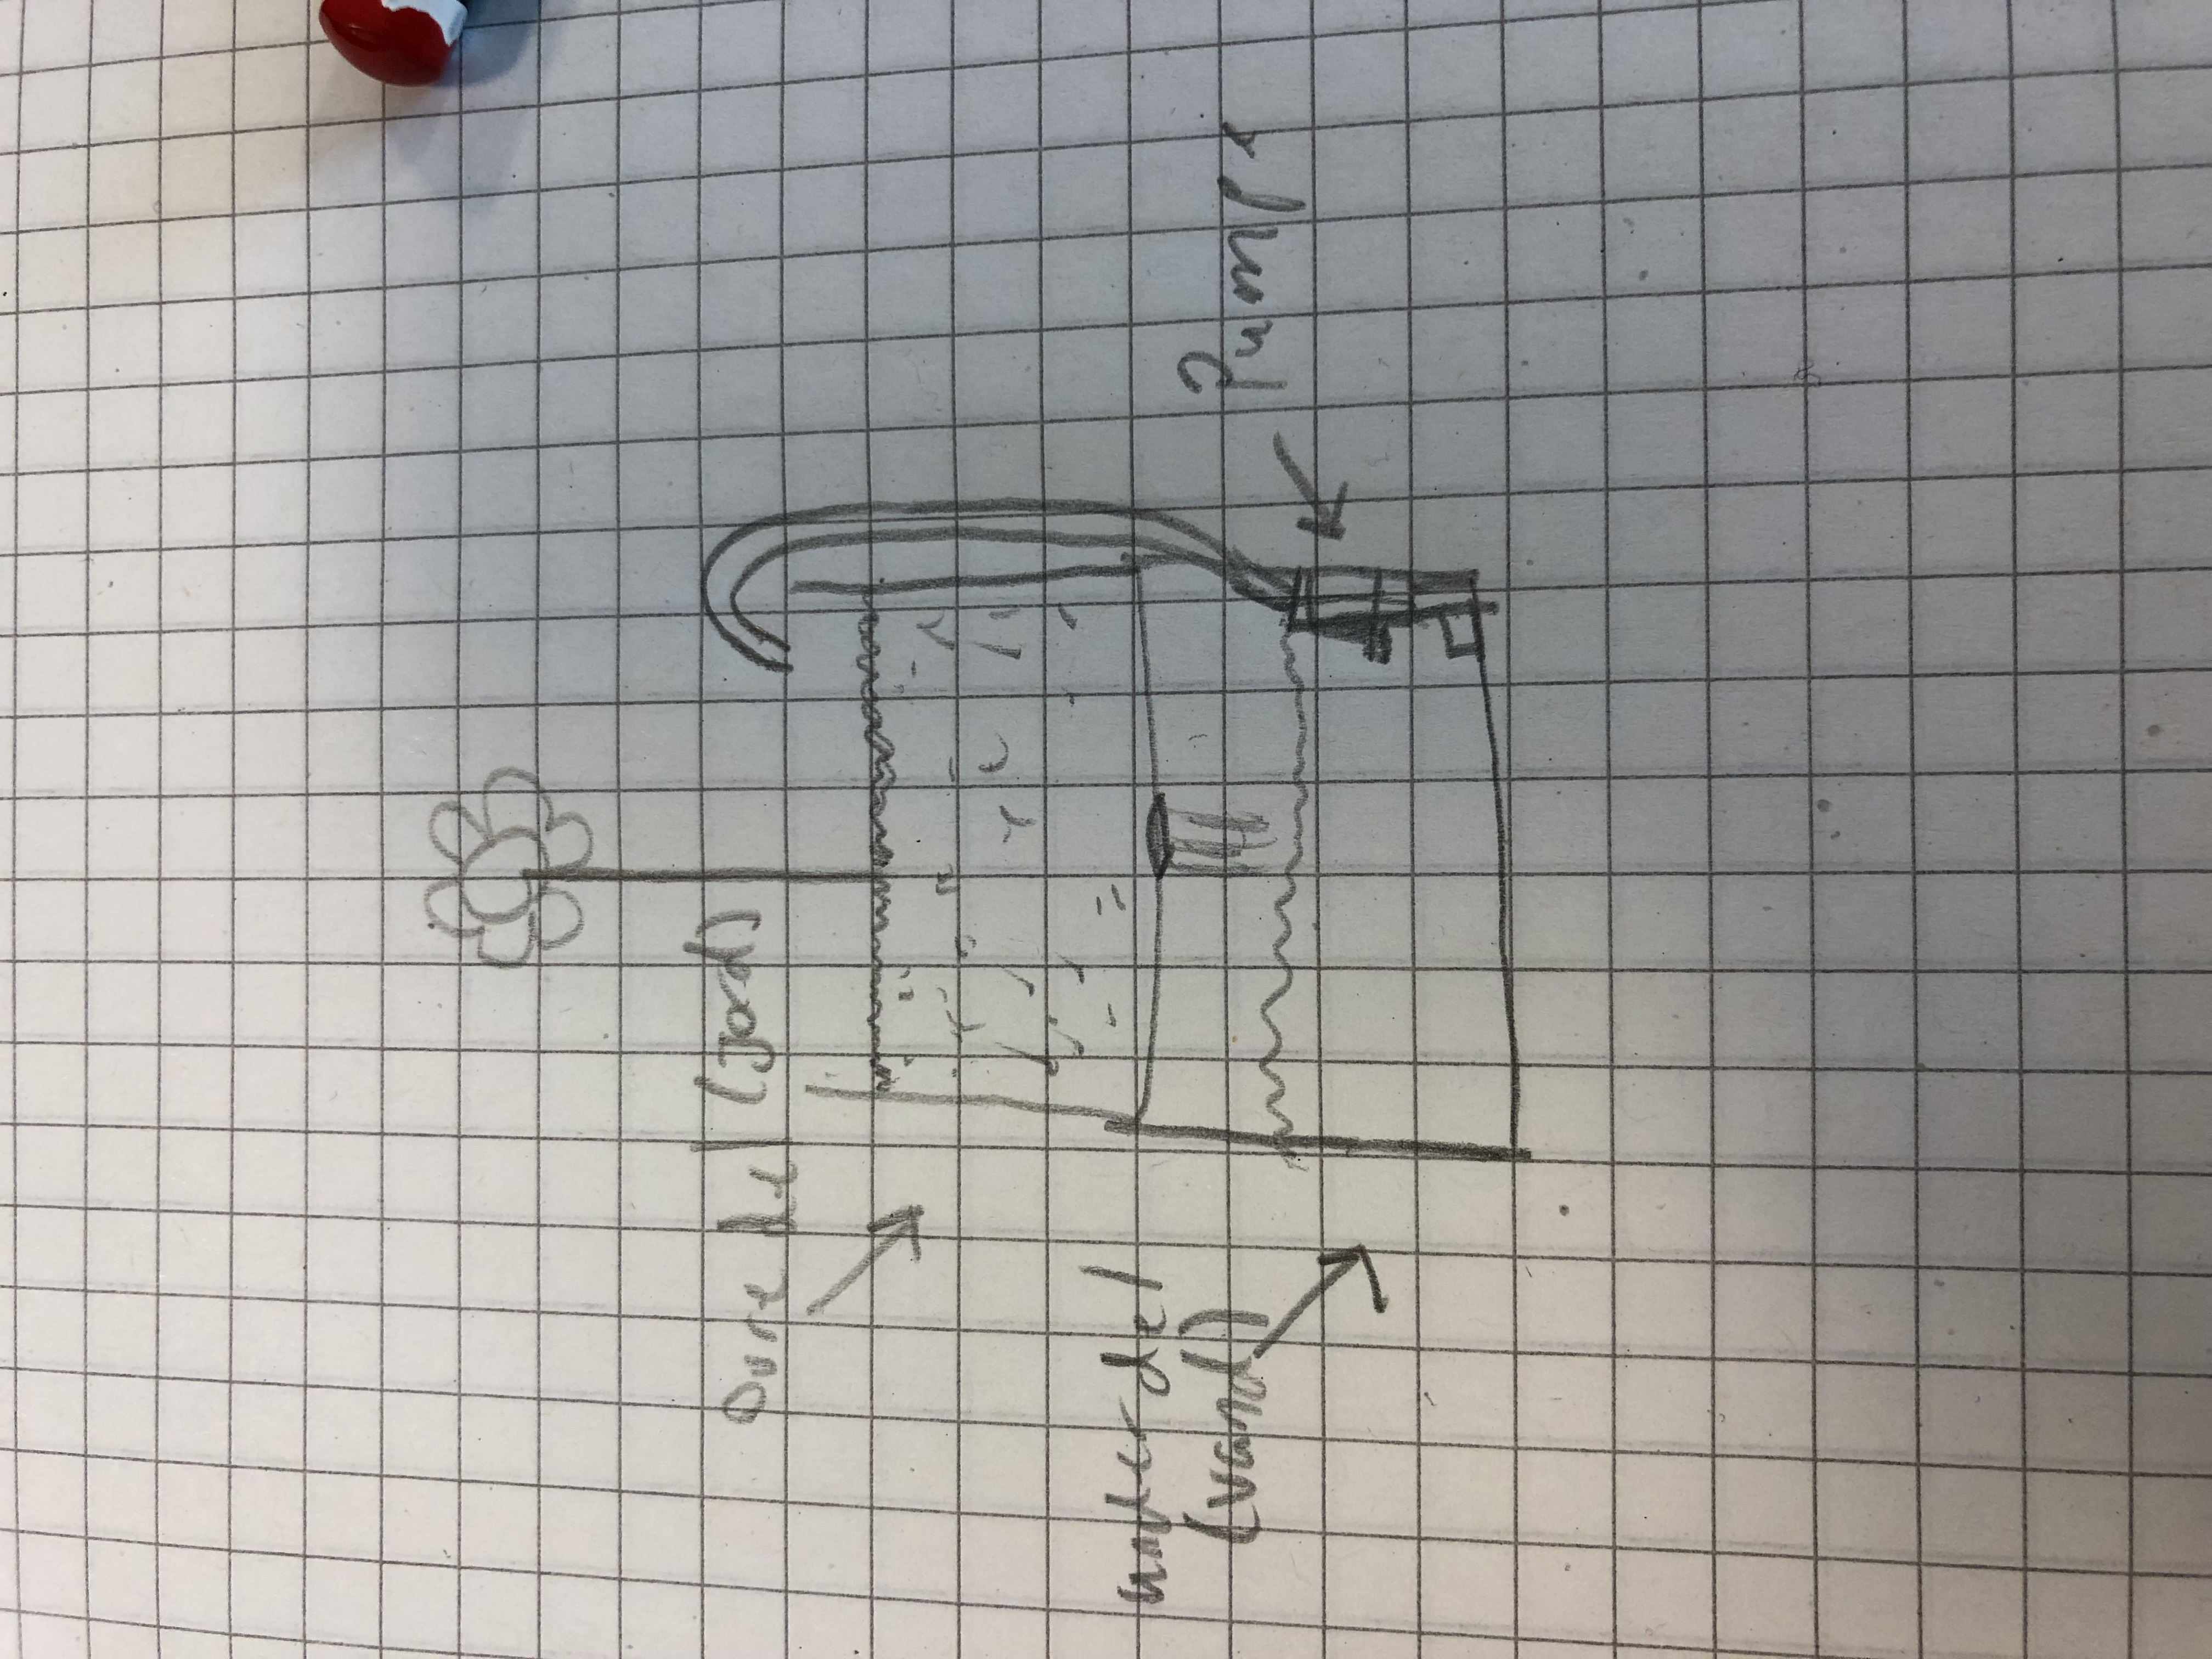 Overe del (Jord)
under del
(vand)
Pumpe